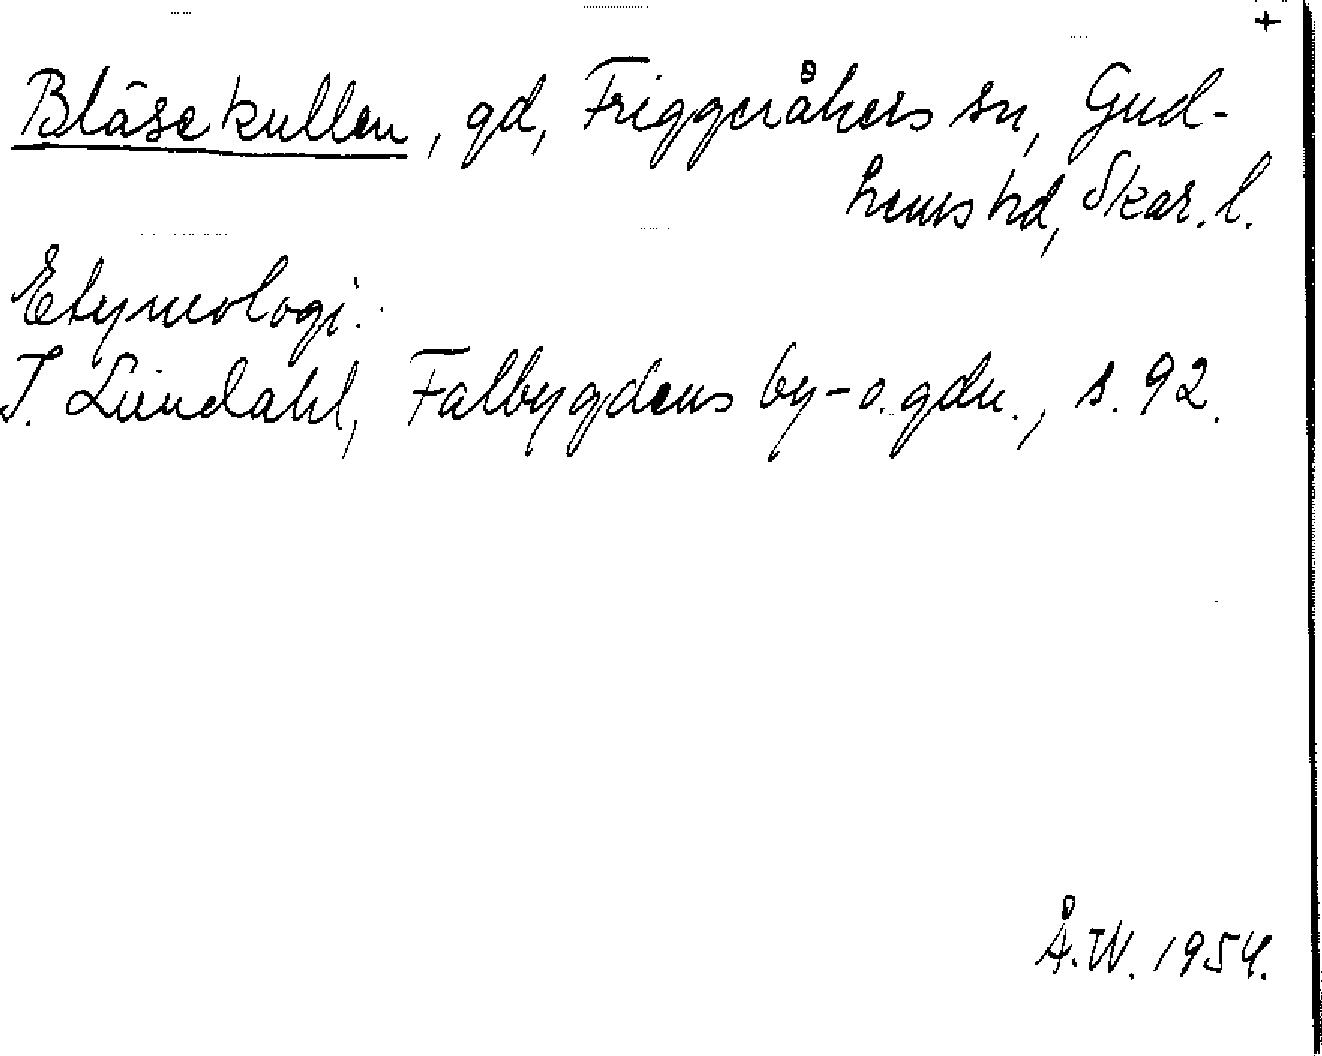 +
Bläsekullen, gd, Friggeråkers sn, Gud-
hems hd, Skar. l.
Etymologi:
I. Lundahl, Falbygdens by- o. gdn., s. 92.
Å.W. 1954.